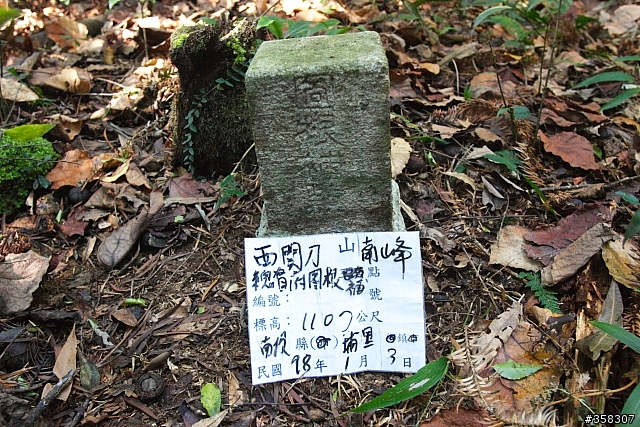 圖根補
西關刀 山南峰
總督府圖根補點
編號: 號
標高: 1107公尺
南投縣(市)埔里 鎮
民國98年1月3日
#358307